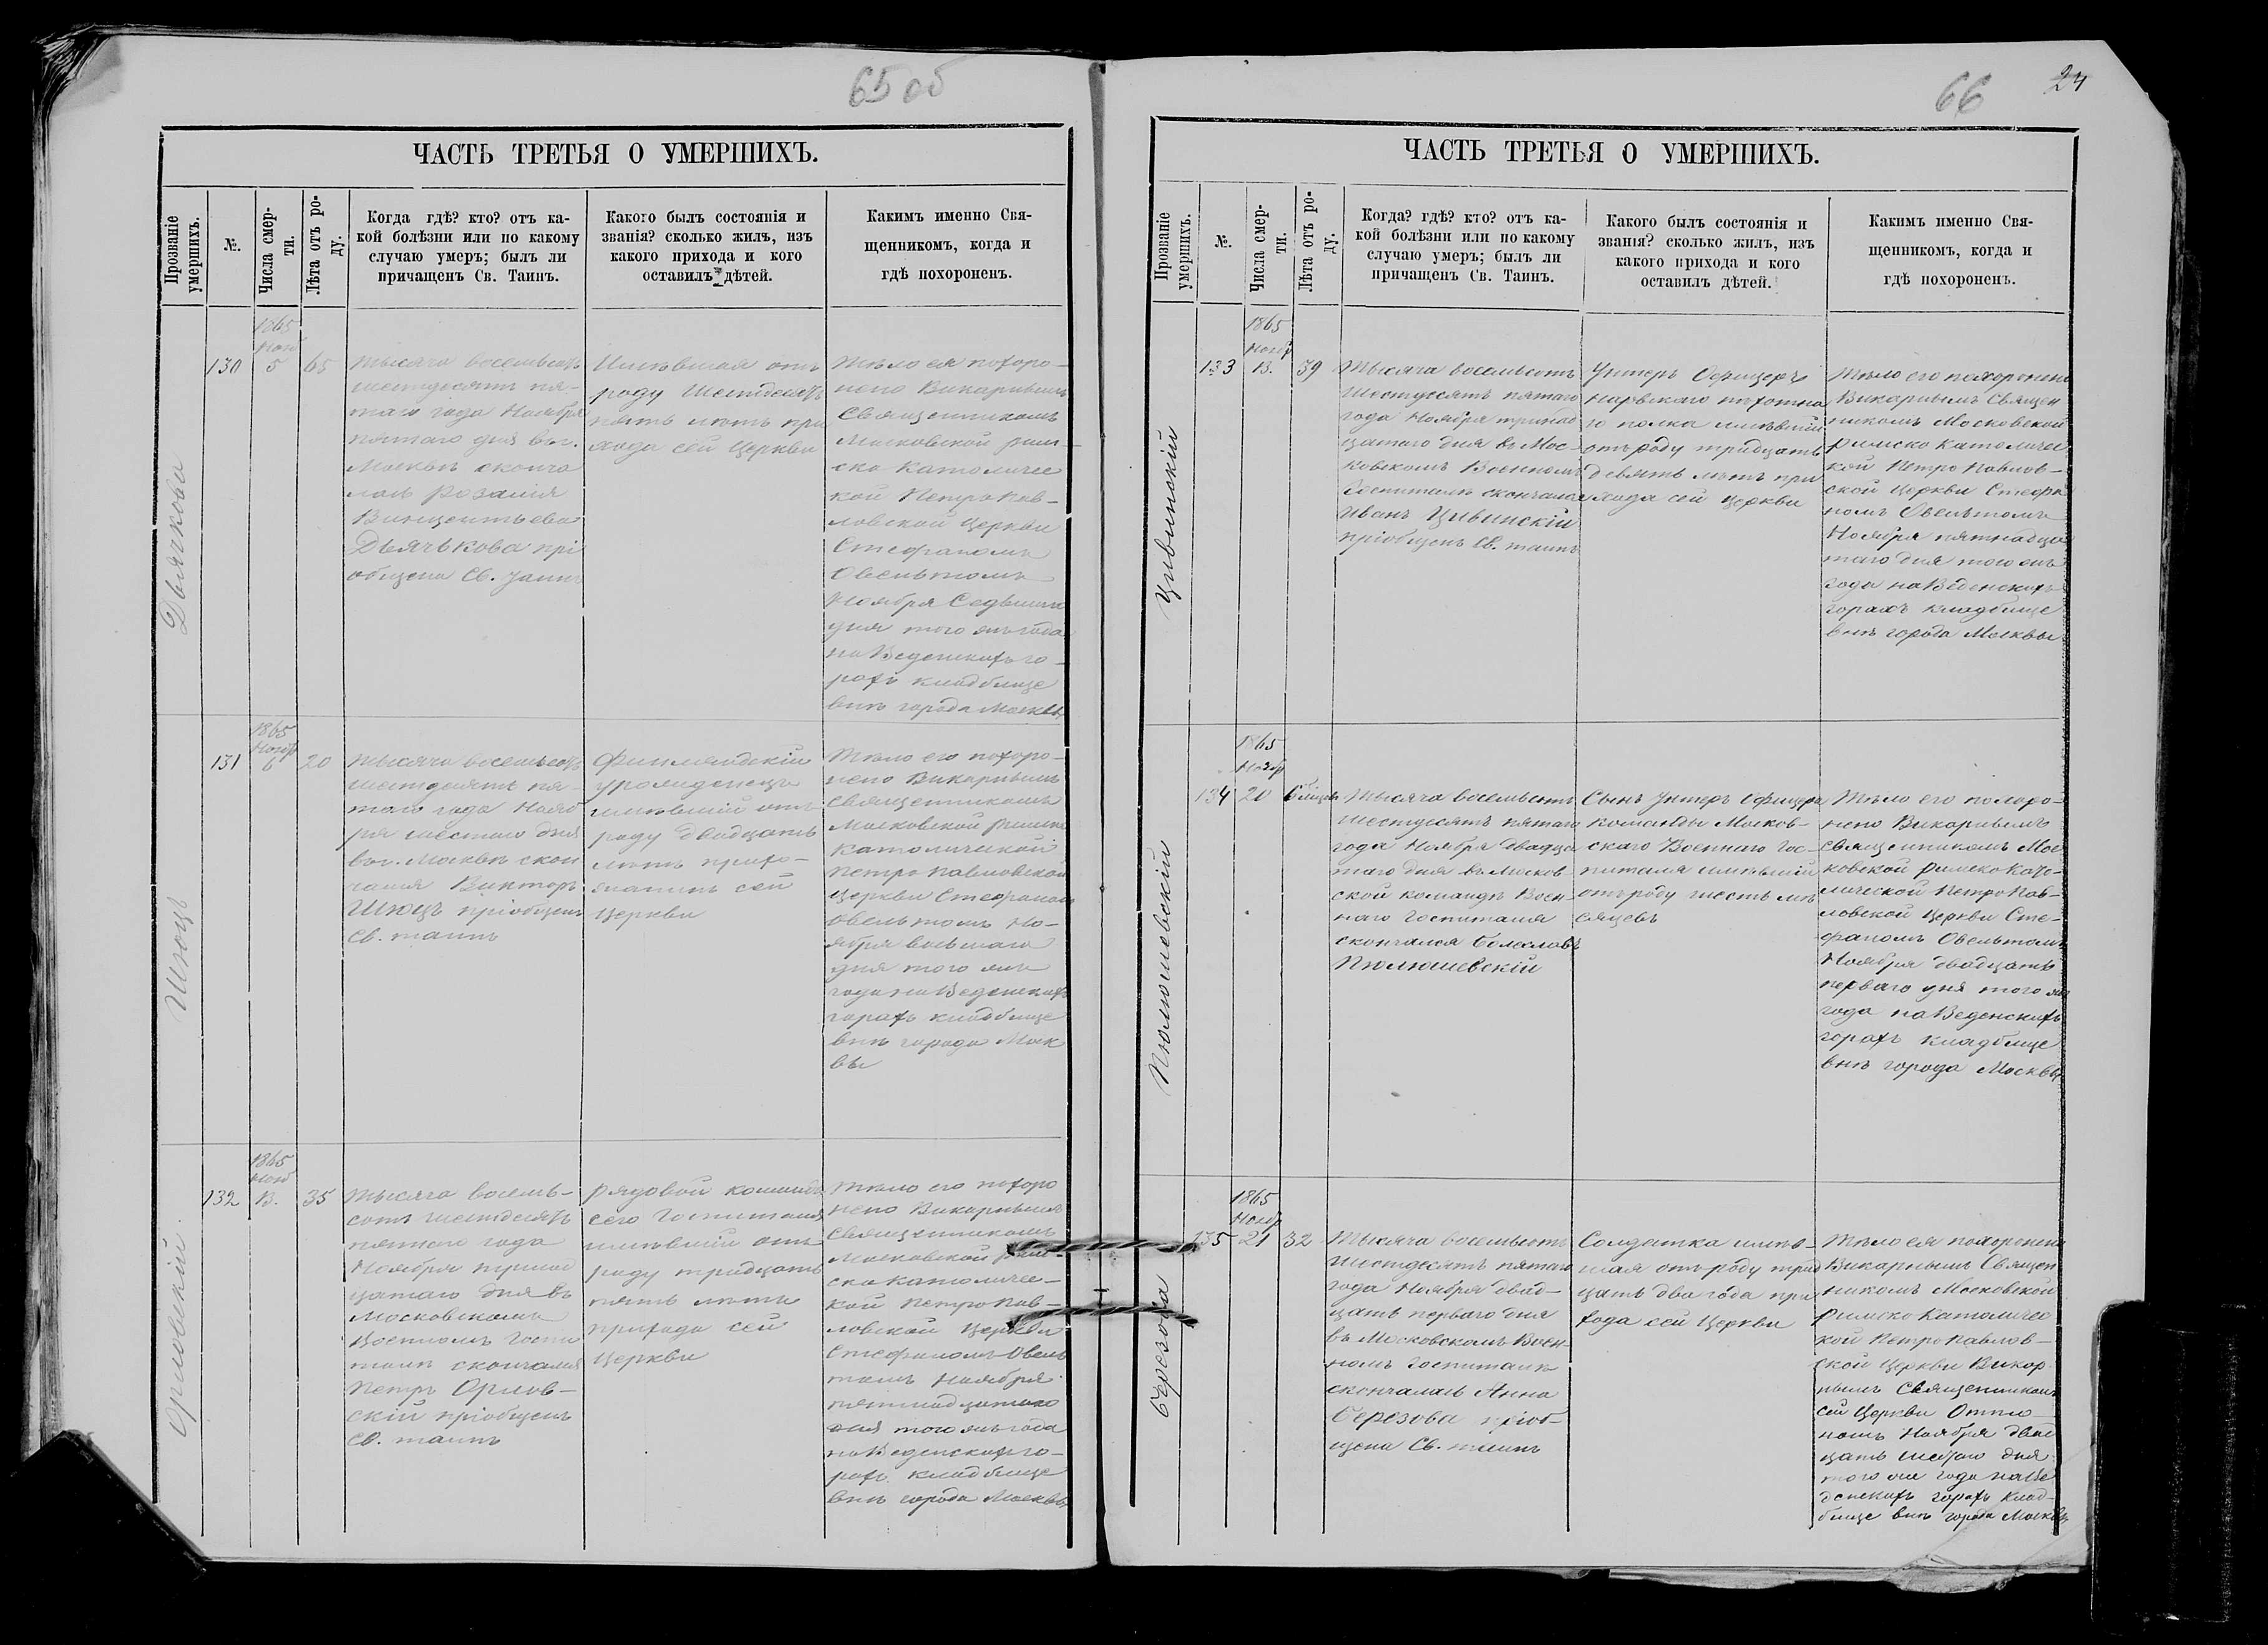 65 об
ЧАСТЬ ТРЕТЬЯ О УМЕРШИХЪ.
Прозваніе умершихъ.
№.
Числа смер-
ти.
Лѣта отъ ро-
ду.
Когда гдѣ? кто? отъ ка-
кой болѣзни или по какому
случаю умеръ; былъ ли
причащенъ Св. Таинъ.
Какого былъ состоянія и
званія? сколько жилъ, изъ
какого прихода и кого
оставилъ дѣтей.
Какимъ именно Свя-
щенникомъ, когда и
гдѣ похороненъ.
Дьячкова
130
1865
Нояб
5
65
Тысяча восемьсотъ
шестдесятъ пя-
таго года Ноября
пятаго дня въ г.
Москвѣ сконча
лась Розалія
Винцентьева
Дьячькова прі
общена Св. Таинъ
Имѣвшая отъ
роду шестдесятъ
пять лѣтъ при
хода сей Церкви
Тѣло ея похоро-
нено Викарнымъ
Священникомъ
Московской рим-
ско-католичес
кой Петропав-
ловской Церкви
Стефаномъ
Овельтомъ
Ноября Седьмаго
дня того жъ года
на Веденскихъ го-
рахъ кладбище
внѣ города Москвы
Шюцъ
131
1865
Ноябр
6
20
Тысяча восемьсотъ
шестдесятъ пя-
таго года Нояб
ря шестаго дня
въ г. Москвѣ скон
чался Викторъ
Шюцъ пріобщенъ
Св. таинъ
Финляндскій
уроженецъ
имѣвшій отъ
роду двадцать
лѣтъ прихо-
жанинъ сей
Церкви
Тѣло его похоро-
нено Викарнымъ
Священникомъ
Московской римско
католической
Петропавловской
Церкви Стефаномъ
Овельтомъ Но-
ября восьмаго
дня того жъ
года на Веденскихъ
горахъ кладбище
внѣ города Моск
вы
Орловскій.
132
1865
Нояб
13.
35
Тысяча восемь-
сотъ шестдесятъ
пятаго года
Ноября тринад
цатаго дня въ
Московскомъ
Военномъ госпи
талѣ скончался
Петръ Орлов-
скій пріобщенъ
Св. таинъ
Рядовой команды
сего Госпиталя
имѣвшій отъ
роду тридцать
пять лѣтъ
прихода сей
Церкви
Тѣло его похоро
нено Викарнымъ
Священникомъ
Московской рим
ско католичес-
кой Петропав-
ловской Церкви
Стефаномъ Овель
томъ Ноября
пятнадцатаго
дня того жъ года
на Веденскихъ го-
рахъ кладбище
внѣ города Москвы
66
24
ЧАСТЬ ТРЕТЬЯ О УМЕРШИХЪ.
Прозваніе умершихъ.
№.
Числа смер-
ти.
Лѣта отъ ро-
ду.
Когда? гдѣ? кто? отъ ка-
кой болѣзни или по какому
случаю умеръ; былъ ли
причащенъ Св. Таинъ.
Какого былъ состоянія и
званія? сколько жилъ, изъ
какого прихода и кого
оставилъ дѣтей.
Какимъ именно Свя-
щенникомъ, когда и
гдѣ похороненъ.
Цивинскій
133
1865
Ноябр
13.
39
Тысяча восемьсотъ
шестдесятъ пятаго
года Ноября тринад
цатаго дня въ Мос-
ковскомъ Военномъ
Госпиталѣ скончался
Иванъ Цивинскій
пріобщенъ Св. таинъ
Унтеръ Офицеръ
Нарвскаго пехотна
го полка имѣвшій
отъ роду тридцать
девять лѣтъ при
хода сей Церкви
Тѣло его похоронено
Викарнымъ Священ
никомъ Московской
римско Католичес
кой Петро Павлов-
ской Церкви Стефа
номъ Овельтомъ
Ноября пятнадца
таго дня того жъ
года на Веденскихъ
горахъ кладбище
внѣ города Москвы
Пюлюшевскій
134
1865
Ноябр
20
6 мѣсяц
Тысяча восемьсотъ
шестдесятъ пятаго
года Ноября двадца
таго дня въ Москов
ской командѣ Воен-
наго Госпиталя
скончался Болеславъ
Пюлюшевскій
Сынъ Унтеръ Офицера
команды Москов-
скаго Военнаго Гос-
питаля имѣвшій
отъ роду шесть мѣ
сяцевъ
Тѣло его похоро-
нено Викарнымъ
Священникомъ Мос
ковской Римско Като-
лической Петро Пав-
ловской Церкви Сте-
фаномъ Овельтомъ
Ноября двадцать
перваго дня того жъ
года на Веденскихъ
горахъ кладбище
внѣ города Москвы
Березова
135
1865
Ноябр
21
32
Тысяча восемьсотъ
шестдесятъ пятаго
года Ноября двад-
цать перваго дня
въ Московскомъ Воен-
номъ Госпиталѣ
скончалась Анна
Березова пріоб-
щена Св. таинъ
Солдатка имѣв-
шая отъ роду трид
цать два года при
хода сей Церкви
Тѣло ея похоронено
Викарнымъ Священ
никомъ Московской
Римско Католичес
кой Петро Павлов-
ской Церкви Викар
нымъ Священникомъ
сей Церкви
номъ Ноября двад
цать дня
того же года на Ве
денскихъ горахъ клад-
бище внѣ города Москвы